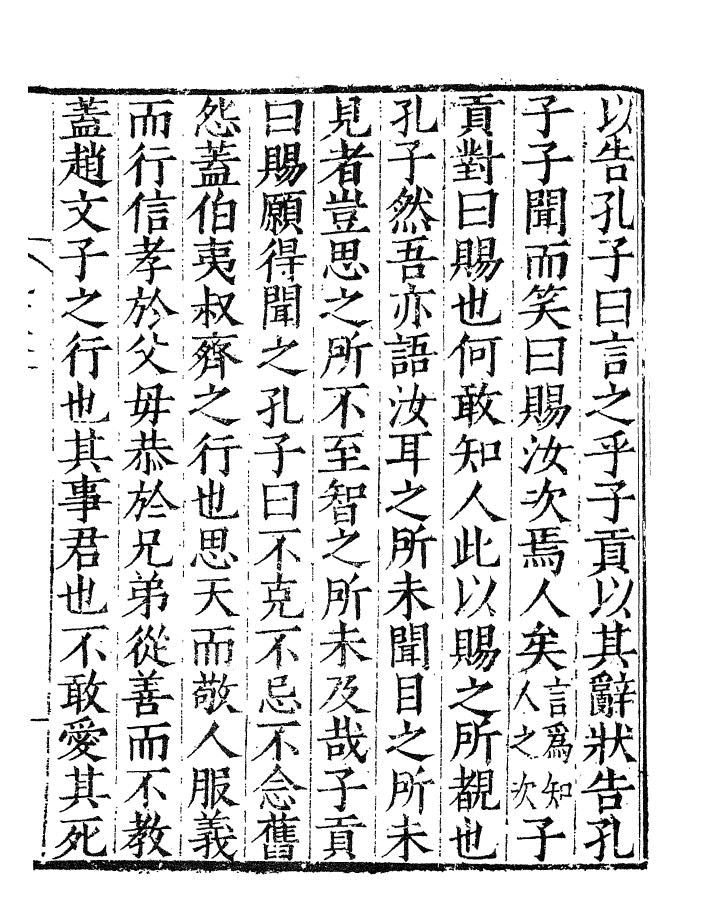 以告孔子曰言之乎子貢以其辭狀告孔
子子聞而笑曰賜汝次焉人矣言爲知人之次子
貢對曰賜也何敢知人此以賜之所覩也
孔子然吾亦語汝耳之所未聞目之所未
見者豈思之所不至智之所未及哉子貢
曰賜願得聞之孔子曰不克不忌不念舊
怨蓋伯夷叔齊之行也思天而敬人服義
而行信孝於父毋恭於兄弟從善而不教
蓋趙文子之行也其事君也不敢愛其死